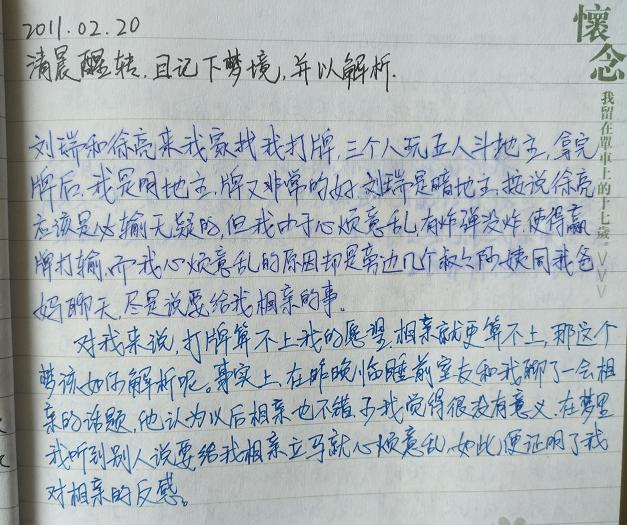 2011.02.20
清晨醒转,且记下梦境,并以解析.
刘瑞和徐亮来我家找我打牌,三个人玩五人斗地主,拿完
牌后,我是明地主,牌又非常的好,刘瑞是暗地主,按说徐亮
应该是必输无疑的,但我由于心烦意乱,有炸弹没炸,使得赢
牌打输,而我心烦意乱的原因却是旁边几个叔叔阿姨同我爸
妈聊天,尽是说要给我相亲的事.
对我来说,打牌算不上我的愿望,相亲就更算不上,那这个
梦该如何解析呢。事实上,在昨晚临睡前室友和我聊了一会相
亲的话题,他认为以后相亲也不错,我觉得很没有意义.在梦里
我听到别人说要给我相亲立马就心烦意乱,如此,便证明了我
对相亲的反感。
懷念
我留在單車上的十七歲。